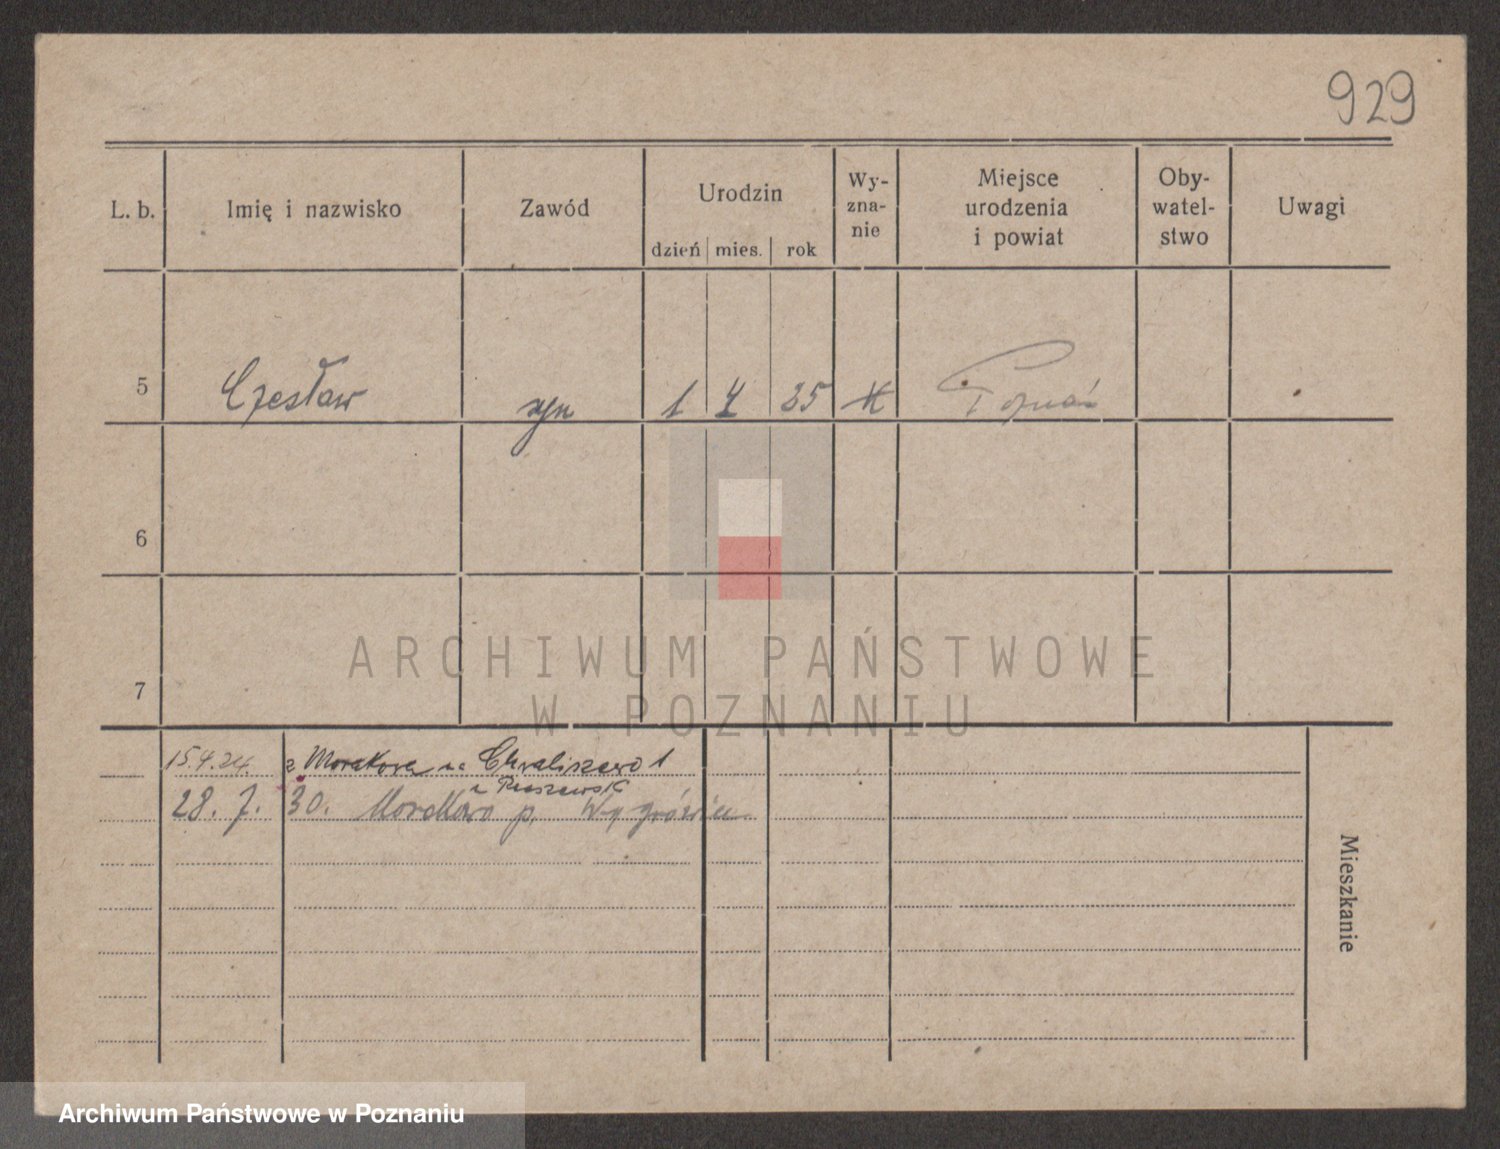 929
L. b. Imię i nazwisko Zawód Urodzin dzień mies. rok Wy-zna-nie Miejsce urodzenia i powiat Oby-watel-stwo Uwagi
5 Czesław syn 1 4 25 K Poznań
6
7
ARCHIWUM PAŃSTWOWE
W POZNANIU
15.4.24. z Morakowa na Chwaliszewo 1
28. 7. 30. Morakowo p. Wągrówiec
Mieszkanie
Archiwum Państwowe w Poznaniu